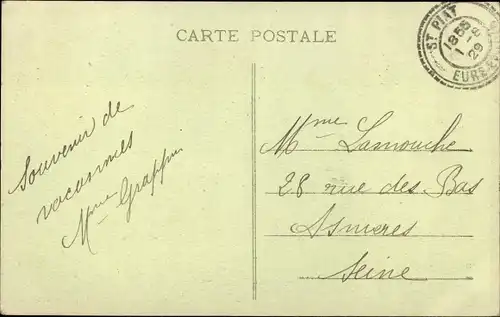 CARTE POSTALE
ST PIAT
18 55
1 - 8
29
EURE-E
Souvenir de
vacannes
Mme Grappin
Mme Lamouche
28 rue des Bas
Asnieres
Seine